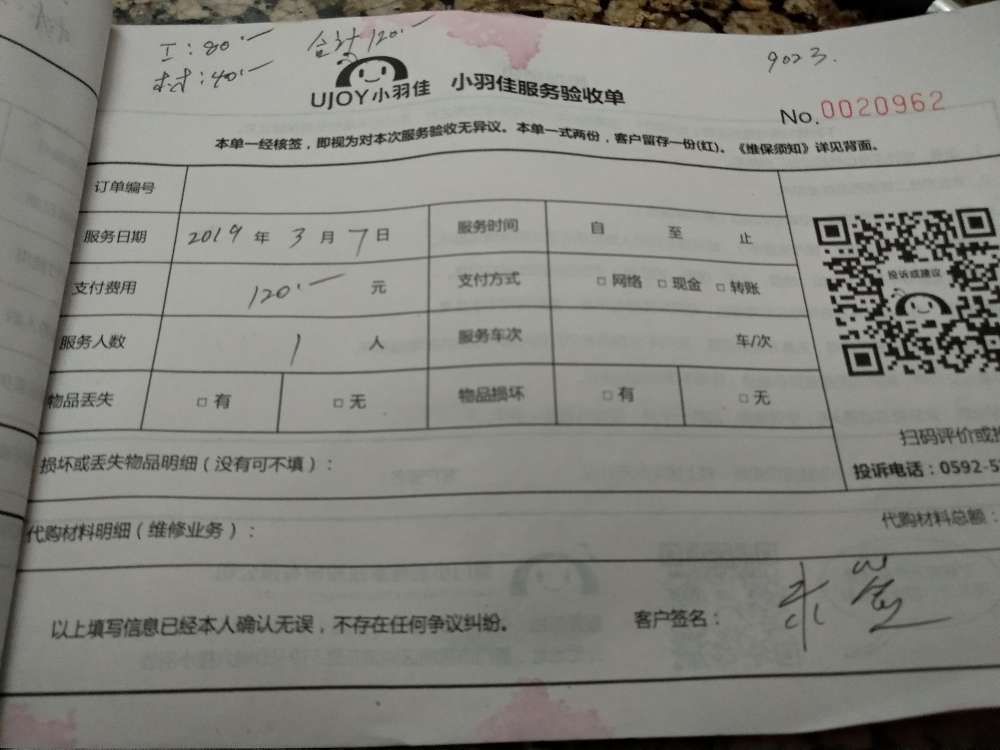 工:80.一 合计120.一
材:40.一
9023.
UJOY小羽佳 小羽佳服务验收单
No.0020962
本单一经核签，即视为对本次服务验收无异议。本单一式两份，客户留存一份(红)。《维保须知》详见背面。
订单编号
服务日期 2019 年 3 月 7 日 服务时间 自 至 止
支付费用 120.一 元 支付方式 □ 网络 □ 现金 □ 转账
服务人数 1 人 服务车次 车/次
物品丢失 □ 有 □ 无 物品损坏 □ 有 □ 无
投诉或建议
扫码评价或投
投诉电话：0592-5
损坏或丢失物品明细（没有可不填）：
代购材料明细（维修业务）： 代购材料总额：
以上填写信息已经本人确认无误，不存在任何争议纠纷。 客户签名：